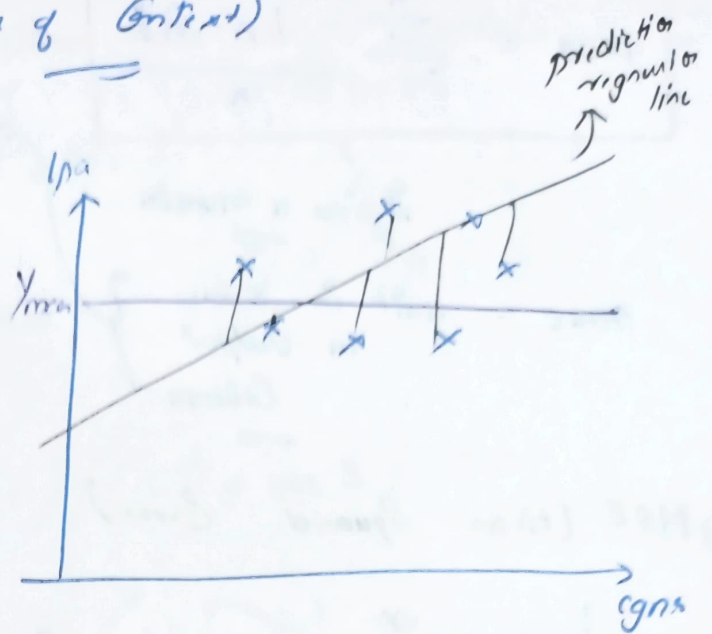 of Context)
prediction
regression
line
lpa
Ymean
cgpa